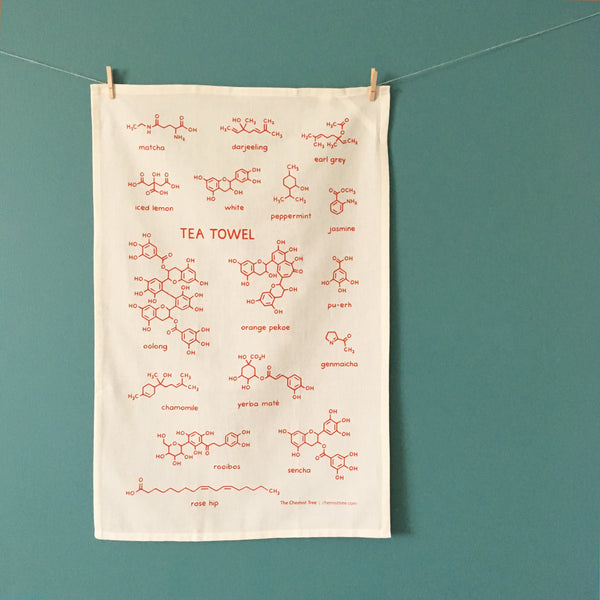 matcha
darjeeling
earl grey
iced lemon
white
peppermint
jasmine
TEA TOWEL
oolong
orange pekoe
pu-erh
genmaicha
chamomile
yerba maté
rooibos
sencha
rose hip
The Chemist Tree | chemisttree.com